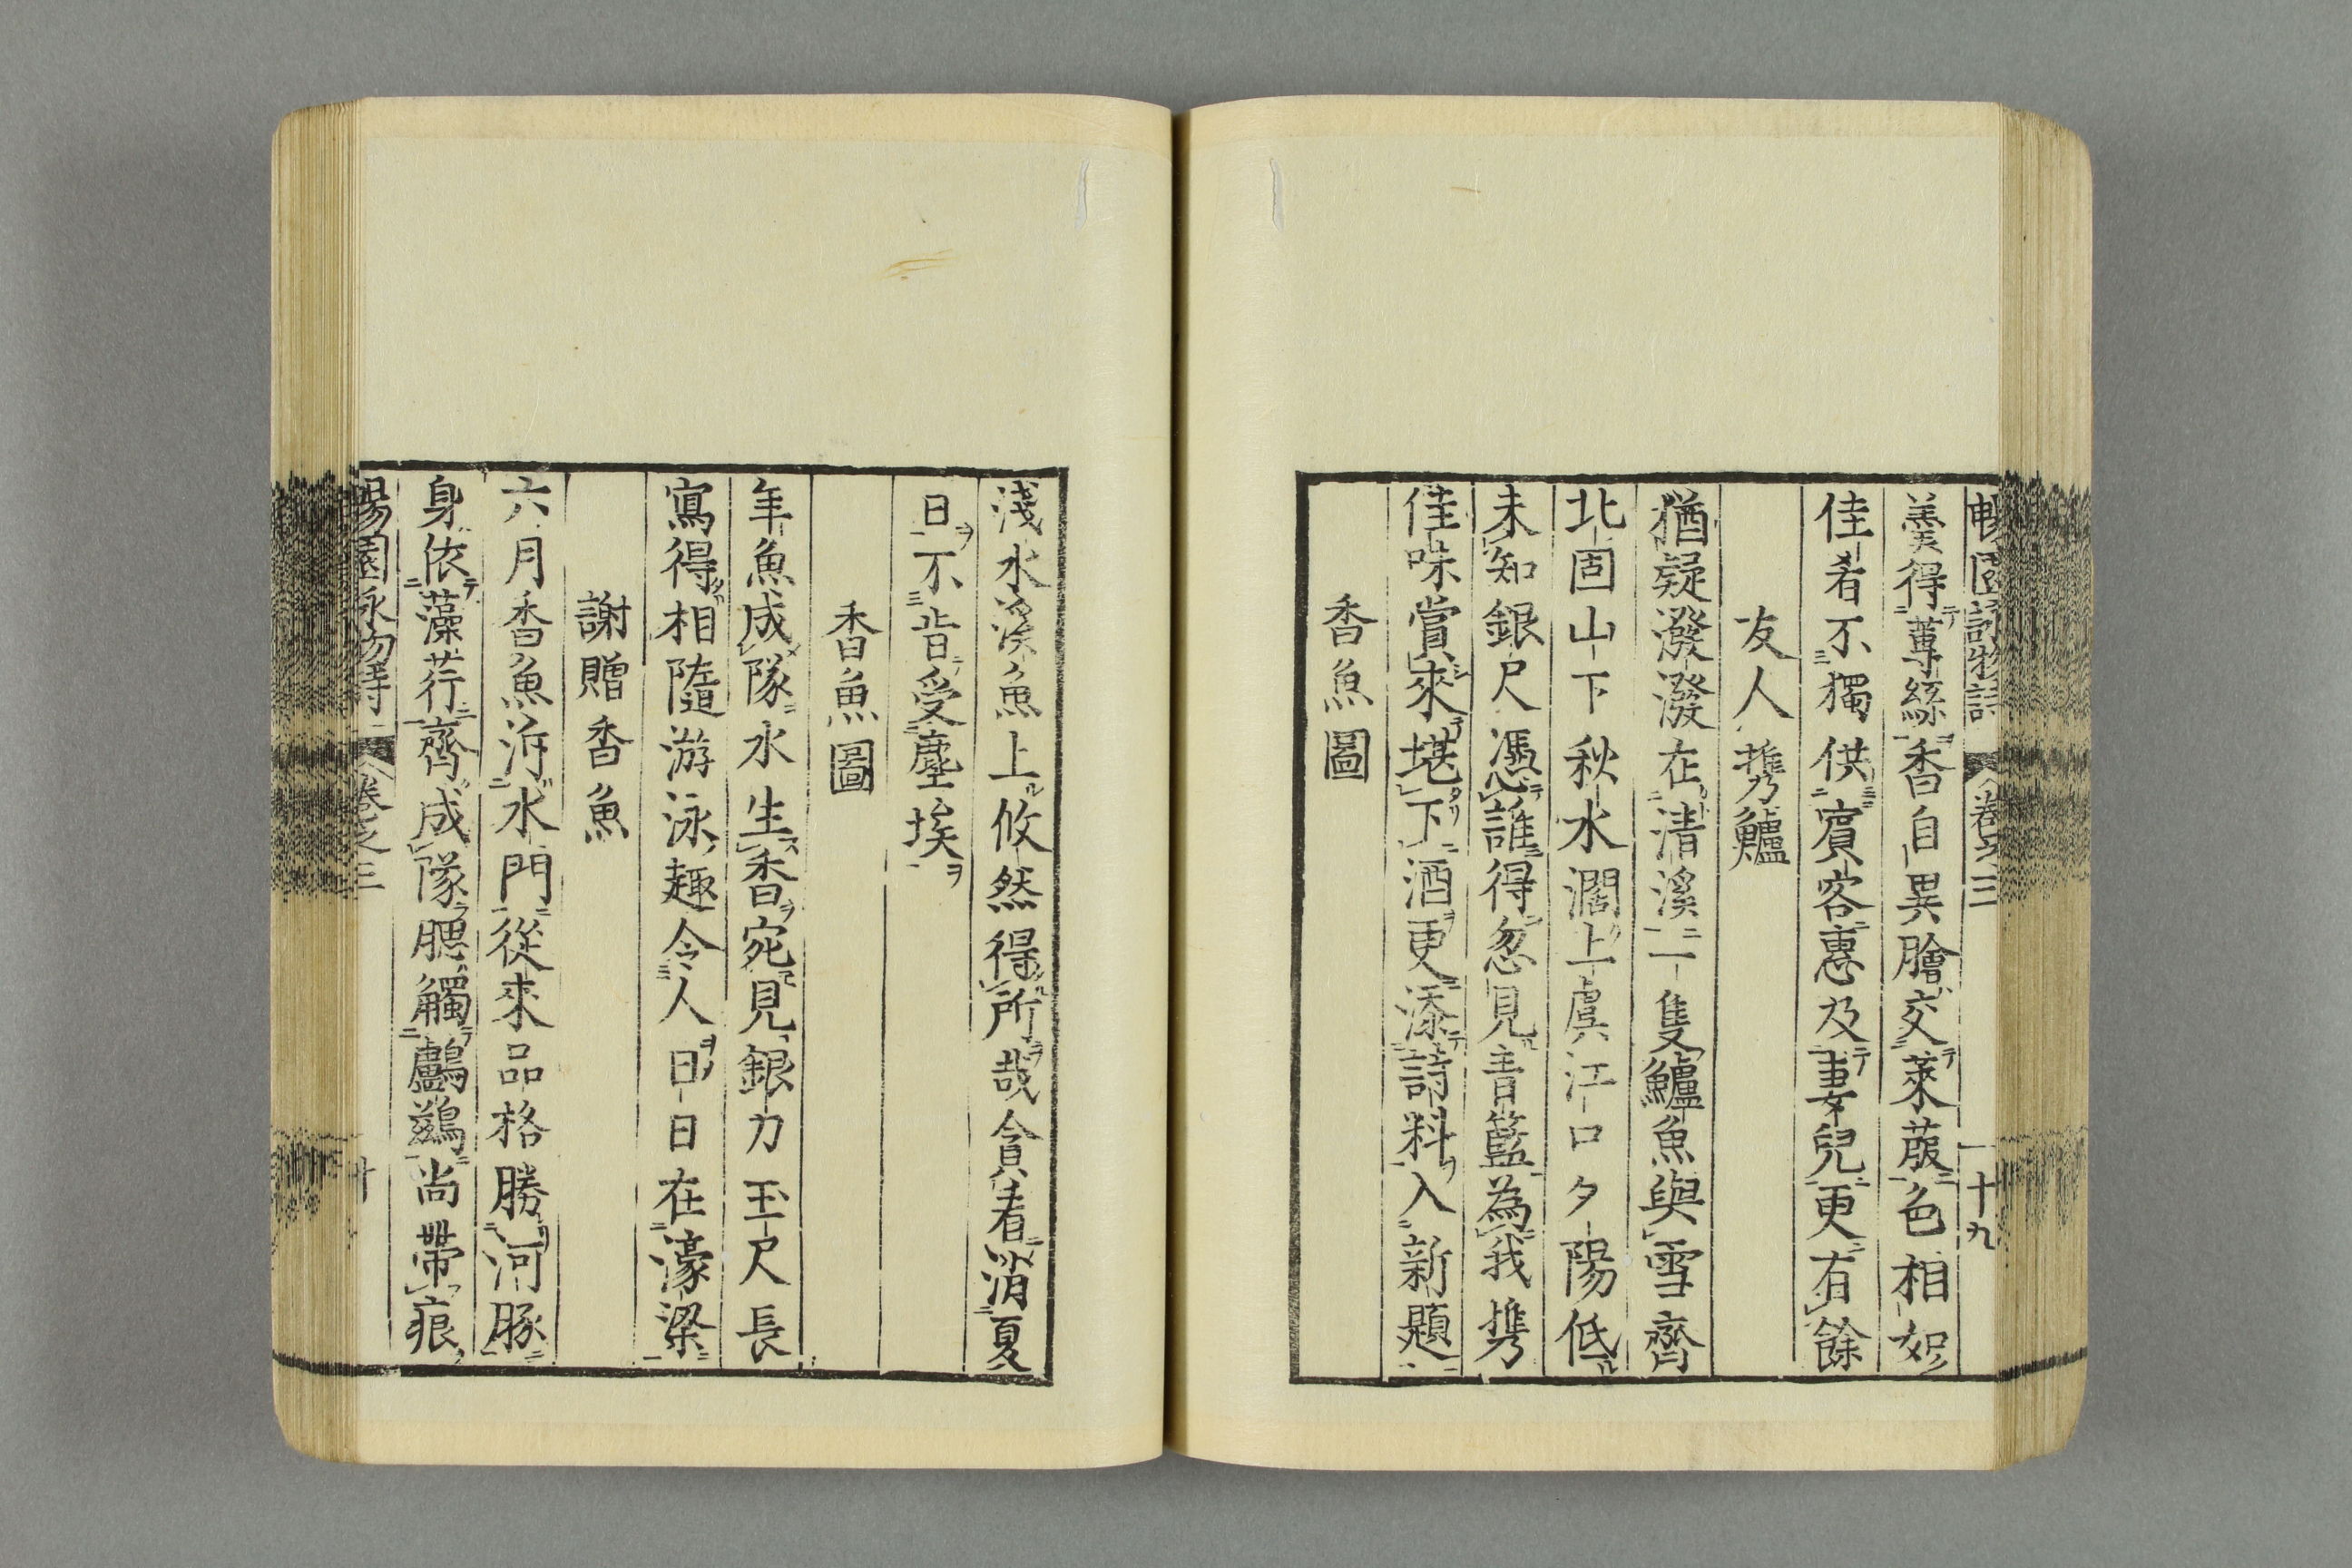 暢園詠物詩 卷之三 十九
羹得蓴絲香自異膾交萊菔色相如
佳肴不獨供賓客惠及妻兒更有餘
友人携鱸
猶疑潑潑在清溪一隻鱸魚與雪齊
北固山下秋水濶上虞江口夕陽低
未知銀尺憑誰得忽見青籃為我携
佳味賞來堪下酒更添詩料入新題
香魚圖
淺水溪魚上攸然得所哉貪看消夏
日不肯受塵埃
香魚圖
年魚成隊水生香宛見銀刀玉尺長
寫得相隨游泳趣令人日日在濠梁
謝贈香魚
六月香魚泝水門從來品格勝河豚
身依藻荇齊成隊腮觸鸕鷀尚帶痕
暢園詠物詩 卷之三